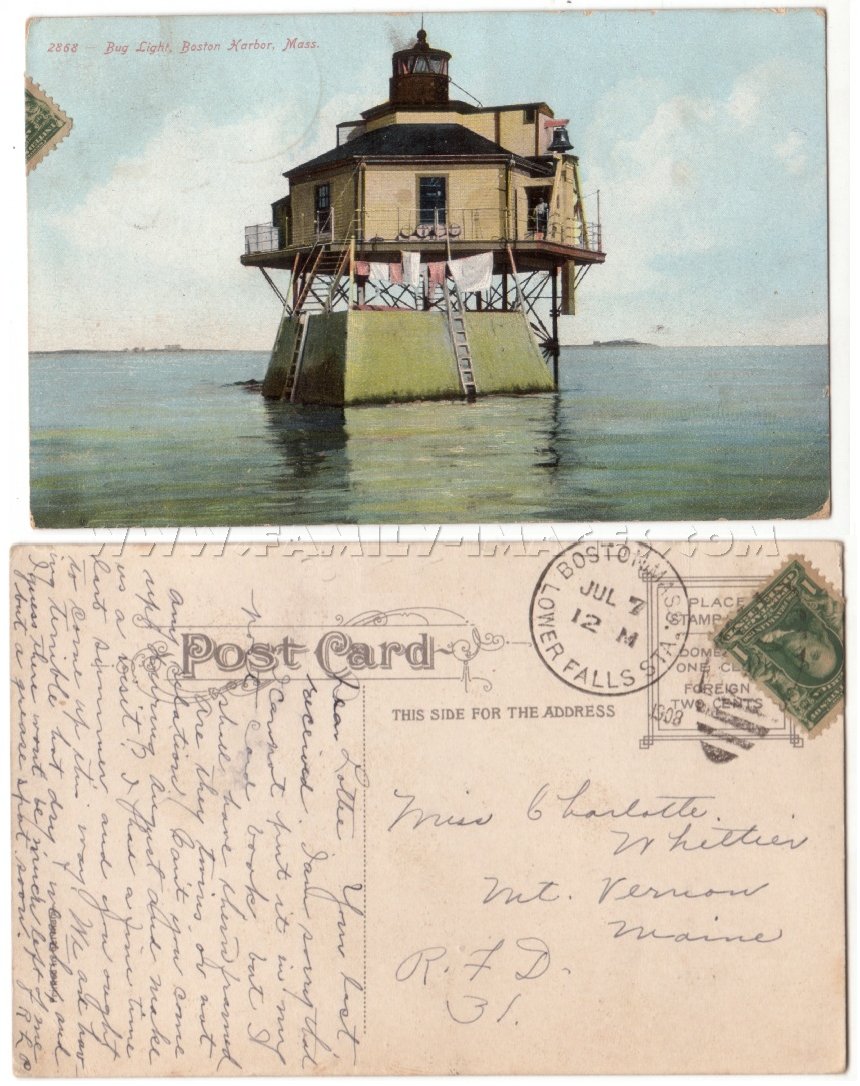 2868 — Bug Light, Boston Harbor, Mass.
WWW.FAMILY-IMAGES.COM
Post Card
THIS SIDE FOR THE ADDRESS
BOSTON, MASS.
JUL 7
12 M
LOWER FALLS STA.
1908
PLACE
STAMP
DOMESTIC
ONE CENT
FOREIGN
TWO CENTS
Miss Charlotte
Whittier
Mt. Vernon
Maine
R.F.D.
31.
Dear Lottie Your last
received. I am sorry that
I cannot put it in my
post card book but I
shall have them framed
Are they twins or not
any relation? Can't you come
up during August and make
us a visit? I had a fine time
last summer and you ought
to come up this way. We are hav-
ing terrible hot dry weather, and
I guess there wont be much left of me
but a grease spot soon.